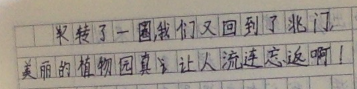 转了一圈我们又回到了北门
美丽的植物园真让人流连忘返啊！